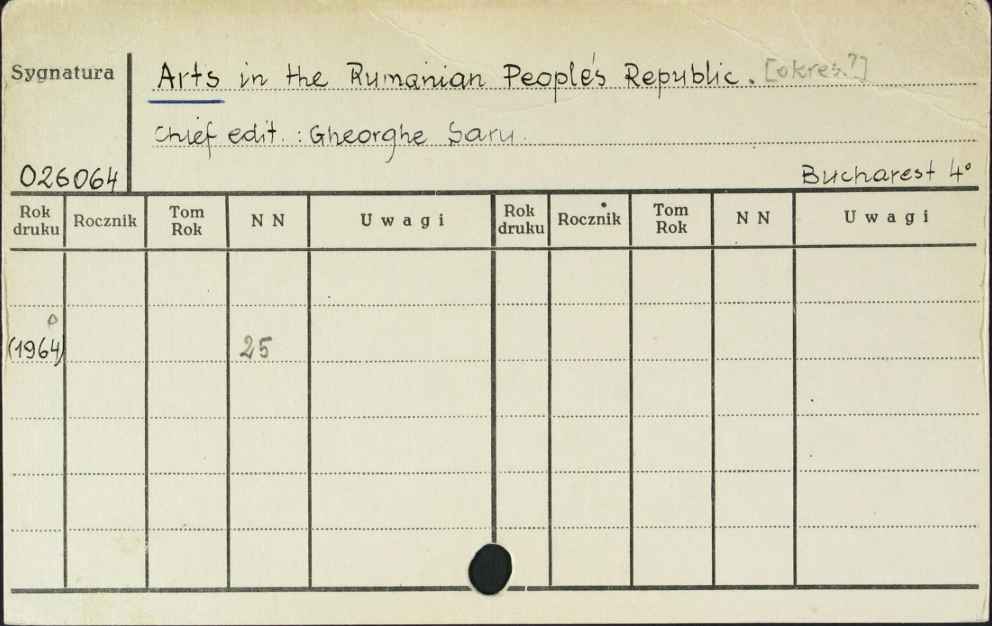 Sygnatura
Arts in the Rumanian People's Republic. [okres.?]
Chief edit. : Gheorghe Şaru.
026064
Bucharest 4°
Rok druku Rocznik Tom Rok NN Uwagi Rok druku Rocznik Tom Rok NN Uwagi
(1964) 25